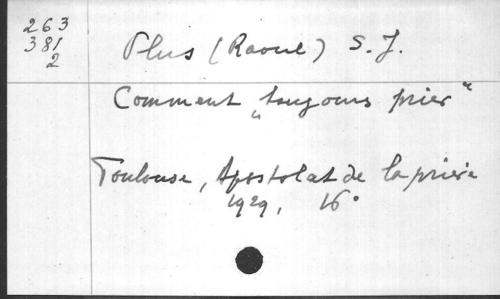 263
381
2
Plus (Raoul) S. J.
Comment „toujours prier“
Toulouse, Apostolat de la prière
1929, 16°